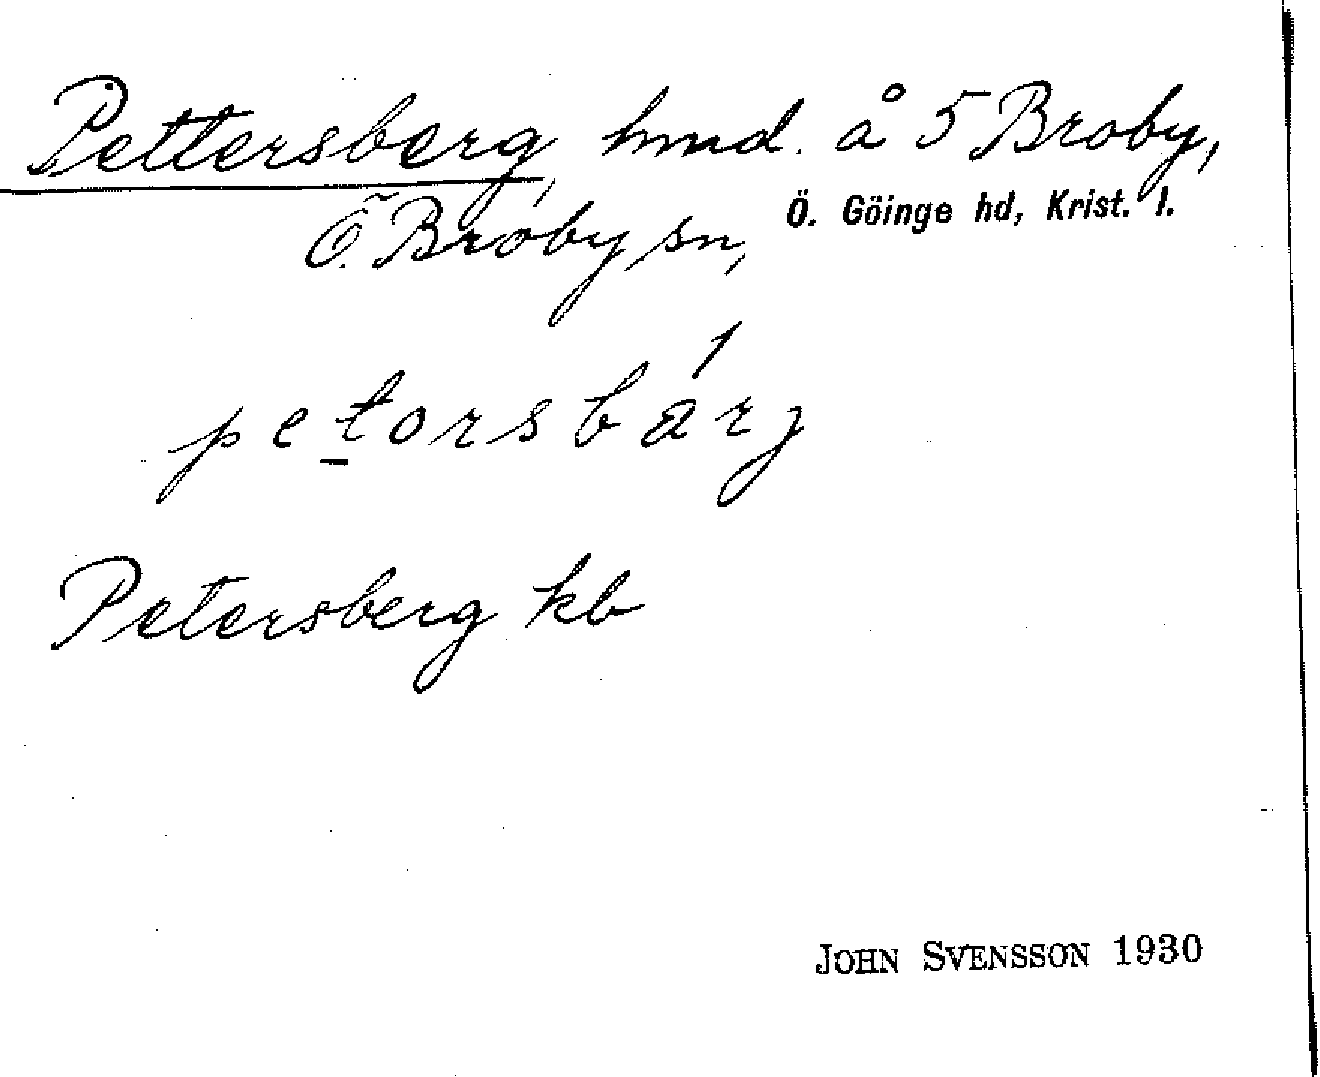 Pettersberg, hmd. å 5 Broby,
Ö. Broby sn, Ö. Göinge hd, Krist. l.
petorsbárj
Petersberg kb
JOHN SVENSSON 1930